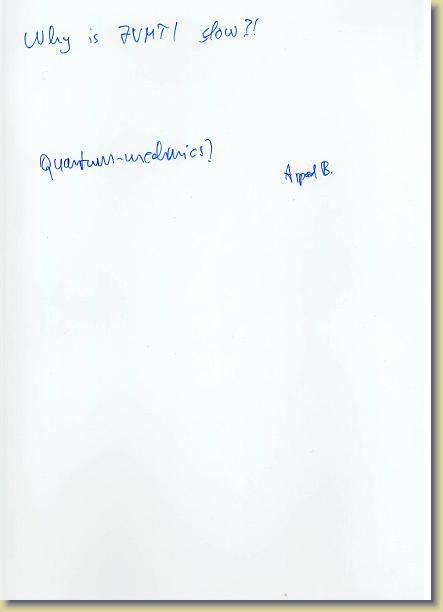 Why is JVMTI slow?!
Quantum-mechanics?
B.